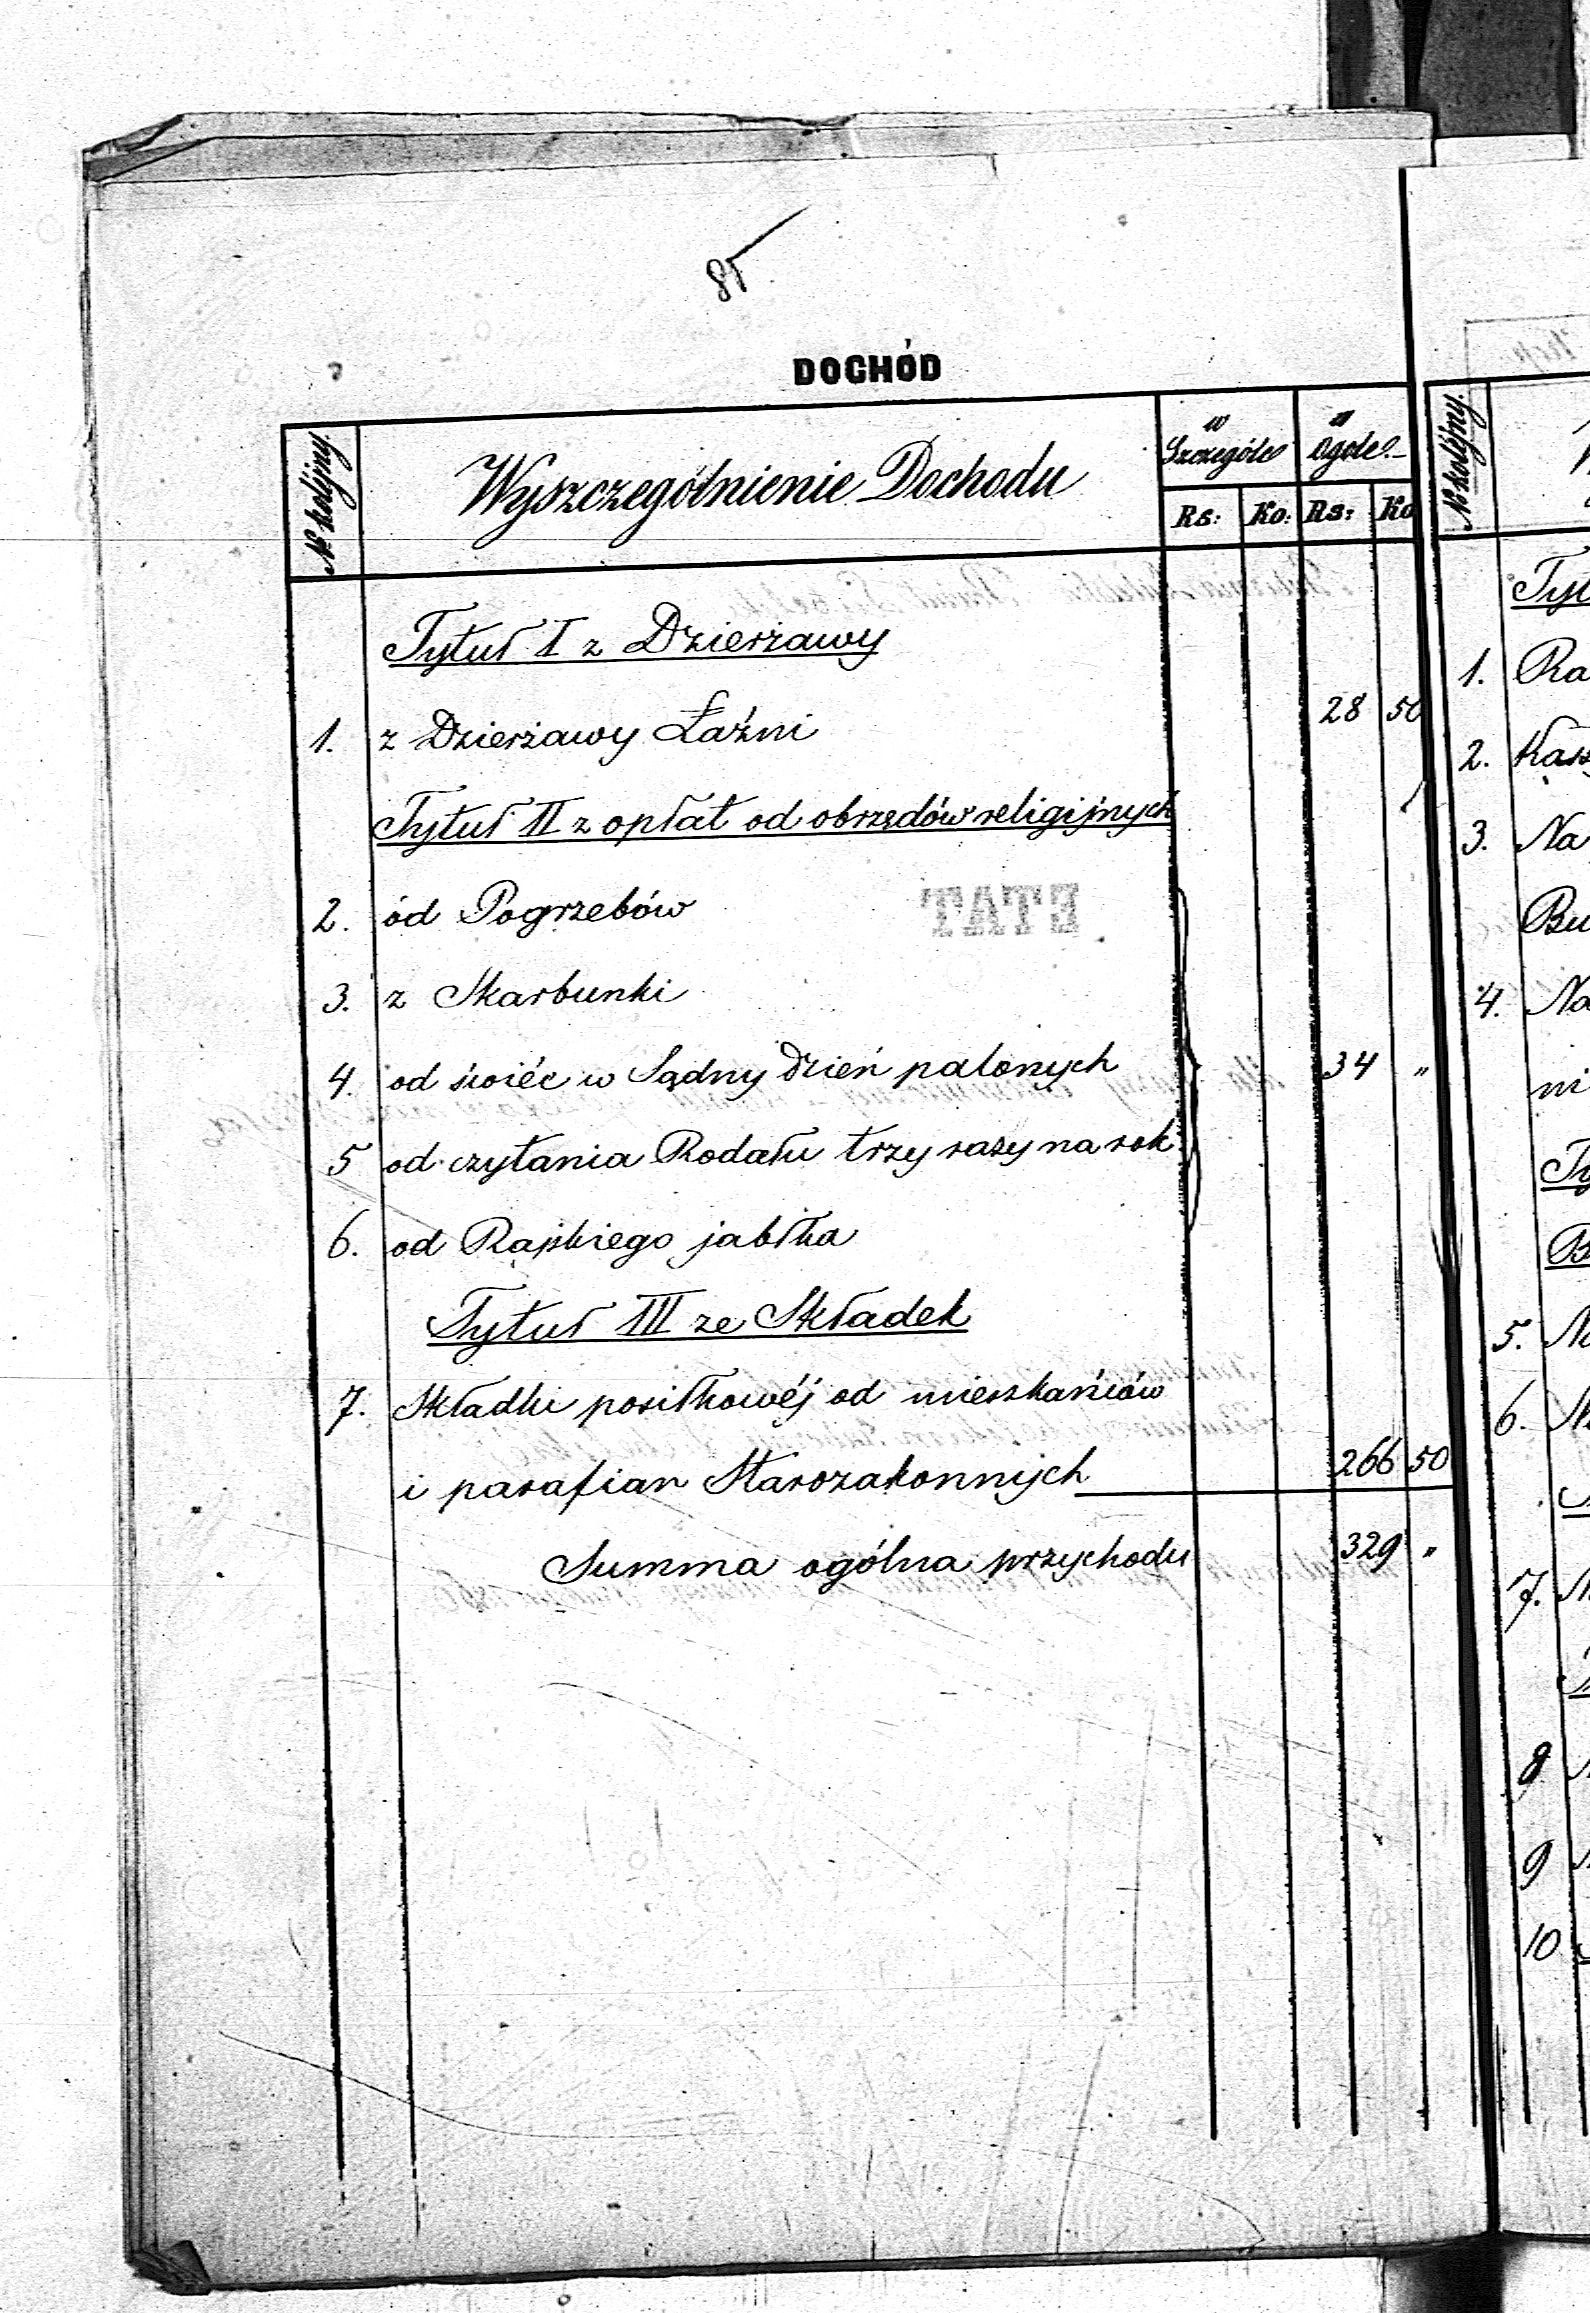 85
DOCHÓD
№ kolejny.
Wyszczególnienie Dochodu
w Szczególe
w Ogole.
Rs: Ko: Rs: Ko
Tytuł I z Dzierżawy
1. z Dzierżawy Łaźni 28 50
Tytuł II z opłat od obrzędów religijnych
2. od Pogrzebów
3. z Skarbunki
4. od świéc w Sądny Dzień palonych 34 "
5 od czytania Rodału trzy razy na rok
6. od Rajskiego jabłka
Tytuł III ze Składek
7. Składki posiłkowéj od mieszkańców
i parafian Starozakonnych 266 50
Summa ogólna przychodu 329 "
№ kolejny.
1. Ra
2. Kass
3. Na
Bu
4. Na
ni
5.
6.
7.
8
9
10